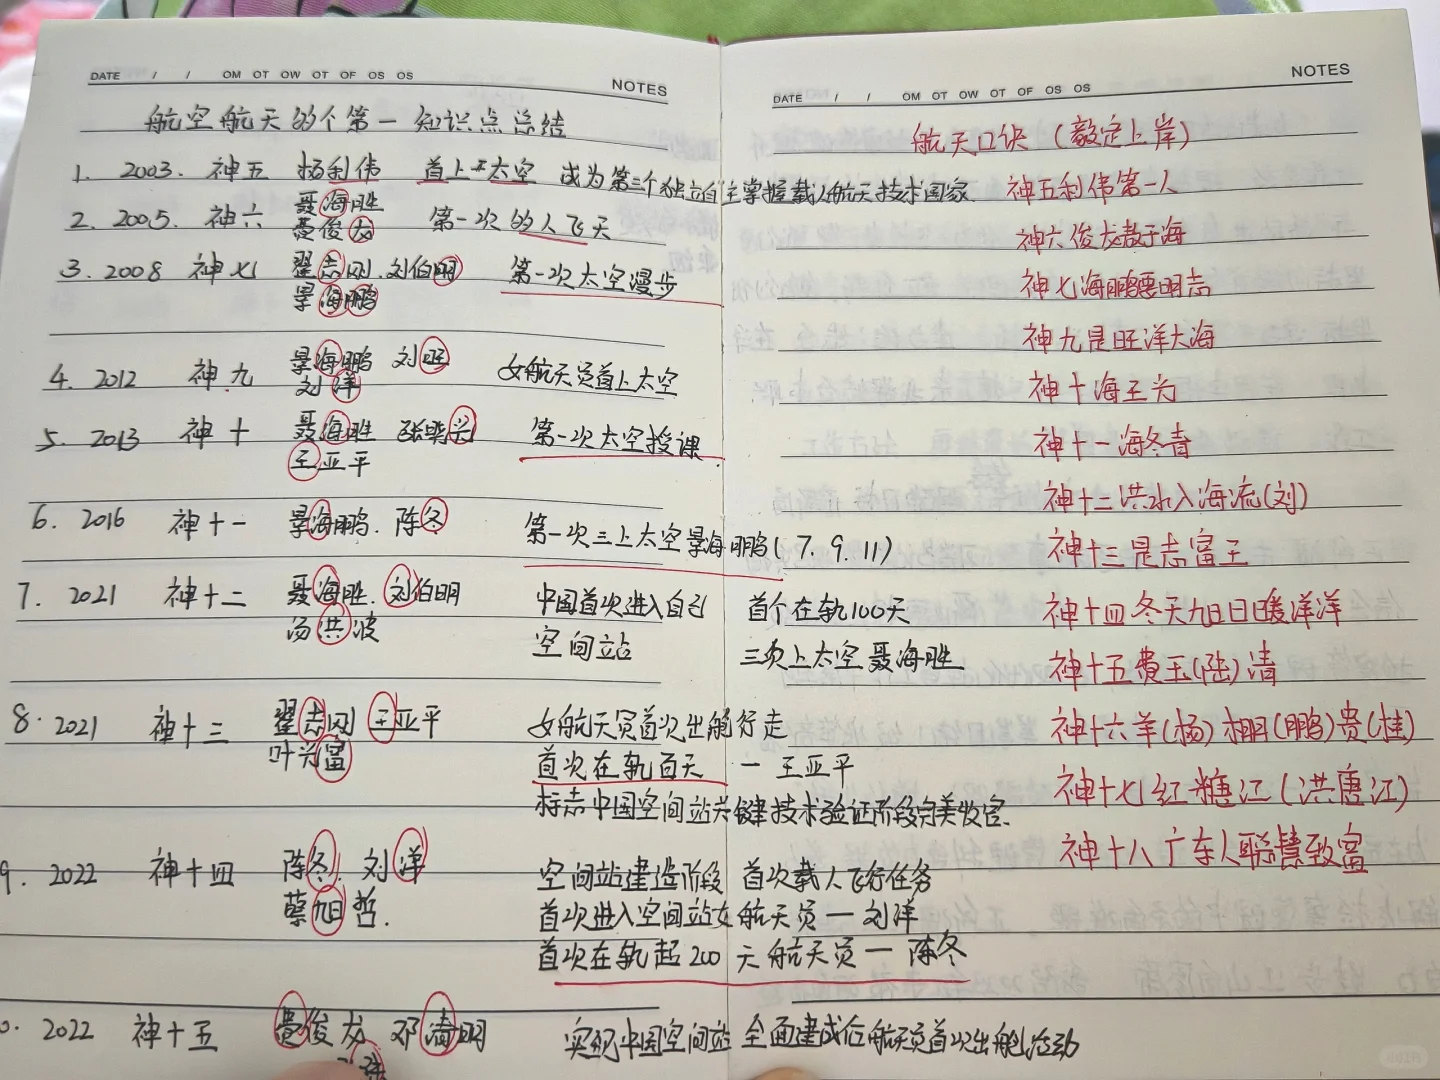 DATE / / OM OT OW OT OF OS OS NOTES
航空航天的个第一 知识点总结
1. 2003. 神五 杨利伟 首上太空 成为第三个独立自主掌握载人航天技术国家.
聂海胜
2. 2005. 神六 费俊龙 第一次的人飞天
3. 2008 神七 翟志刚. 刘伯明 第一次太空漫步
景海鹏
4. 2012 神九 景海鹏 刘旺 女航天员首上太空
刘洋
5. 2013 神十 聂海胜 张晓光 第一次太空授课.
王亚平
6. 2016 神十一 景海鹏. 陈冬 第一次三上太空景海鹏( 7. 9. 11)
7. 2021 神十二 聂海胜. 刘伯明 中国首次进入自己 首个在轨100天
汤洪波 空间站 三次上太空 聂海胜
8. 2021 神十三 翟志刚 王亚平 女航天员首次出舱行走
叶光富 首次在轨百天 — 王亚平
标志中国空间站关键技术验证阶段完美收官.
9. 2022 神十四 陈冬. 刘洋 空间站建造阶段 首次载人飞行任务
蔡旭哲. 首次进入空间站女航天员 — 刘洋
首次在轨超200天航天员 — 陈冬
0. 2022 神十五 费俊龙 邓清明 实现中国空间站全面建成后航天员首次出舱活动
DATE / / OM OT OW OT OF OS OS NOTES
航天口诀 (毅定上岸)
神五利伟第一人
神六俊龙敖于海
神七海鹏要明志
神九是旺洋大海
神十海王为
神十一海冬青
神十二洪水入海流(刘)
神十三是志富王
神十四冬天旭日日暖洋洋
神十五费玉(陆)清
神十六羊(杨)棚(鹏)贵(桂)
神十七红糖江(洪唐江)
神十八广东人聪慧致富